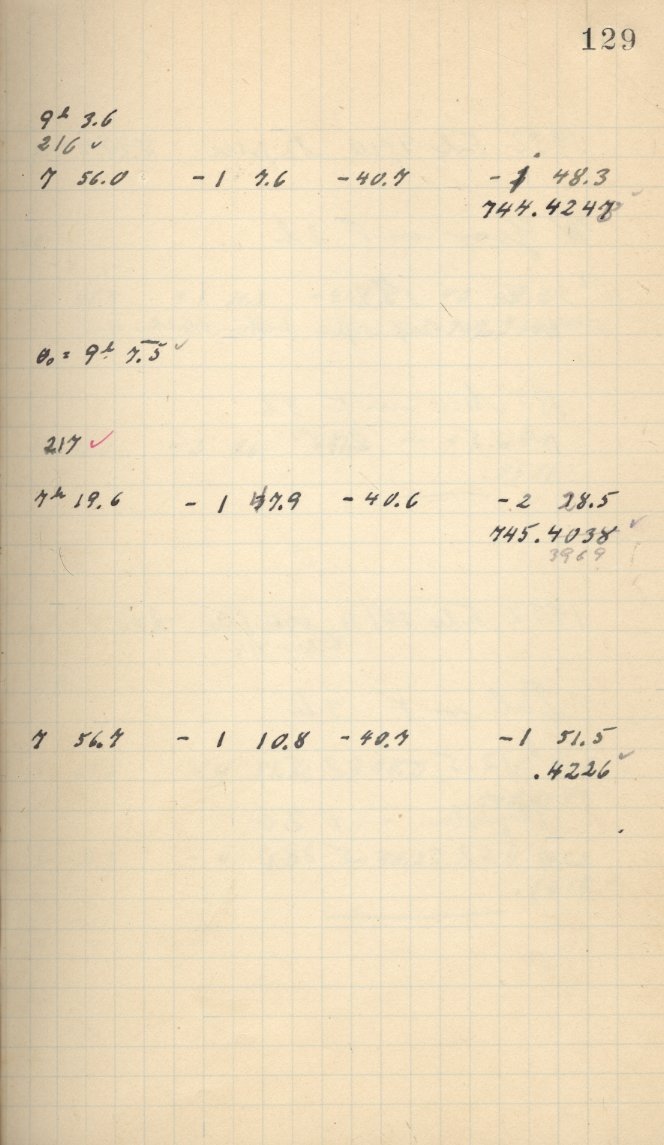 129
9h 3.6
216 ✓
7 56.0 - 1 7.6 - 40.7 - 1 48.3
744.4248 ✓
θ₀ = 9h 7.5 ✓
217 ✓
7h 19.6 - 1 47.9 - 40.6 - 2 28.5
745.4038 ✓
3969
7 56.7 - 1 10.8 - 40.7 - 1 51.5
.4226 ✓